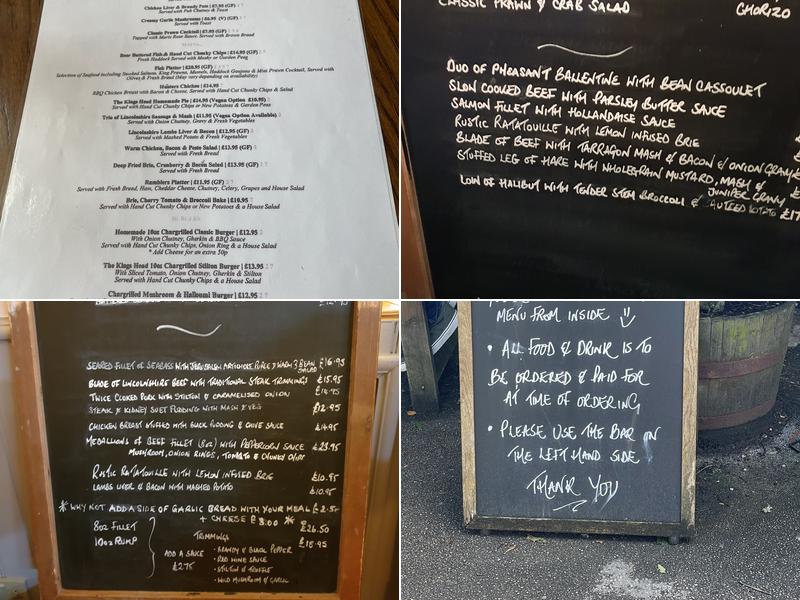 Chicken Liver & Brandy Pate | £7.95 (GF)
Served with Fruit Chutney & Toast
Creamy Garlic Mushrooms | £6.95 (V) (GF)
Served with Toast
Classic Prawn Cocktail | £7.95 (GF)
Topped with Marie Rose Sauce, Served with Brown Bread
Beer Battered Fish & Hand Cut Chunky Chips | £14.95 (GF)
Fresh Haddock Served with Mushy or Garden Peas
Fish Platter | £20.95 (GF)
Selection of Seafood including Smoked Salmon, King Prawns, Mussels, Haddock Goujons & Mini Prawn Cocktail, Served with
Olives & Fresh Bread (May vary depending on availability)
Hunters Chicken | £14.95
BBQ Chicken Breast with Bacon & Cheese, Served with Hand Cut Chunky Chips & Salad
The Kings Head Homemade Pie | £14.95 (Vegan Option £10.95)
Served with Hand Cut Chunky Chips or New Potatoes & Garden Peas
Trio of Lincolnshire Sausage & Mash | £11.95 (Vegan Option Available)
Served with Onion Chutney, Gravy & Fresh Vegetables
Lincolnshire Lambs Liver & Bacon | £12.95 (GF)
Served with Mashed Potato & Fresh Vegetables
Warm Chicken, Bacon & Pesto Salad | £13.95
Served with Fresh Bread
Deep Fried Brie, Cranberry & Bacon Salad | £13.95 (GF)
Served with Fresh Bread
Ramblers Platter | £11.95 (GF)
Served with Fresh Bread, Ham, Cheddar Cheese, Chutney, Celery, Grapes and House Salad
Brie, Cherry Tomato & Broccoli Bake | £10.95
Served with Hand Cut Chunky Chips or New Potatoes & a House Salad
Homemade 10oz Chargrilled Classic Burger | £12.95
With Onion Chutney, Gherkin & BBQ Sauce
Served with Hand Cut Chunky Chips, Onion Ring & a House Salad
* Add Cheese for an extra 50p
The Kings Head 10oz Chargrilled Stilton Burger | £13.95
With Sliced Tomato, Onion Chutney, Gherkin & Stilton
Served with Hand Cut Chunky Chips & a House Salad
Chargrilled Mushroom & Halloumi Burger | £12.95
CLASSIC PRAWN & CRAB SALAD
CHORIZO
DUO OF PHEASANT BALLENTINE WITH BEAN CASSOULET
SLOW COOKED BEEF WITH PARSLEY BUTTER SAUCE
SALMON FILLET WITH HOLLANDAISE SAUCE
RUSTIC RATATOUILLE WITH LEMON INFUSED BRIE
BLADE OF BEEF WITH TARRAGON MASH & BACON & ONION GRAVY £
STUFFED LEG OF HARE WITH WHOLEGRAIN MUSTARD, MASH &
JUNIPER GRAVY £
LOIN OF HALIBUT WITH TENDER STEM BROCCOLI & SAUTEED POTATO £17
SEARED FILLET OF SEABASS WITH JERUSALEM ARTICHOKE PUREE & WARM 3 BEAN SALAD £16.95
BLADE OF LINCOLNSHIRE BEEF WITH TRADITIONAL STEAK TRIMMINGS £15.95
TWICE COOKED PORK WITH STILTON & CARAMELISED ONION £14.95
STEAK & KIDNEY SUET PUDDING WITH MASH & VEG £12.95
CHICKEN BREAST STUFFED WITH BLACK PUDDING & CHIVE SAUCE £14.95
MEDALLIONS OF BEEF FILLET (8oz) WITH PEPPERCORN SAUCE £23.95
MUSHROOM, ONION RINGS, TOMATO & CHUNKY CHIPS
RUSTIC RATATOUILLE WITH LEMON INFUSED BRIE £10.95
LAMBS LIVER & BACON WITH MASHED POTATO £10.95
* WHY NOT ADD A SIDE OF GARLIC BREAD WITH YOUR MEAL £2.50
+ CHEESE £3.00 *
8oz FILLET £26.50
10oz RUMP £18.95
TRIMMINGS
ADD A SAUCE
£2.75
• BRANDY & BLACK PEPPER
• RED WINE SAUCE
• STILTON & TRUFFLE
• WILD MUSHROOM & GARLIC
MENU FROM INSIDE
• ALL FOOD & DRINK IS TO
BE ORDERED & PAID FOR
AT TIME OF ORDERING
• PLEASE USE THE BAR ON
THE LEFT HAND SIDE
THANK YOU